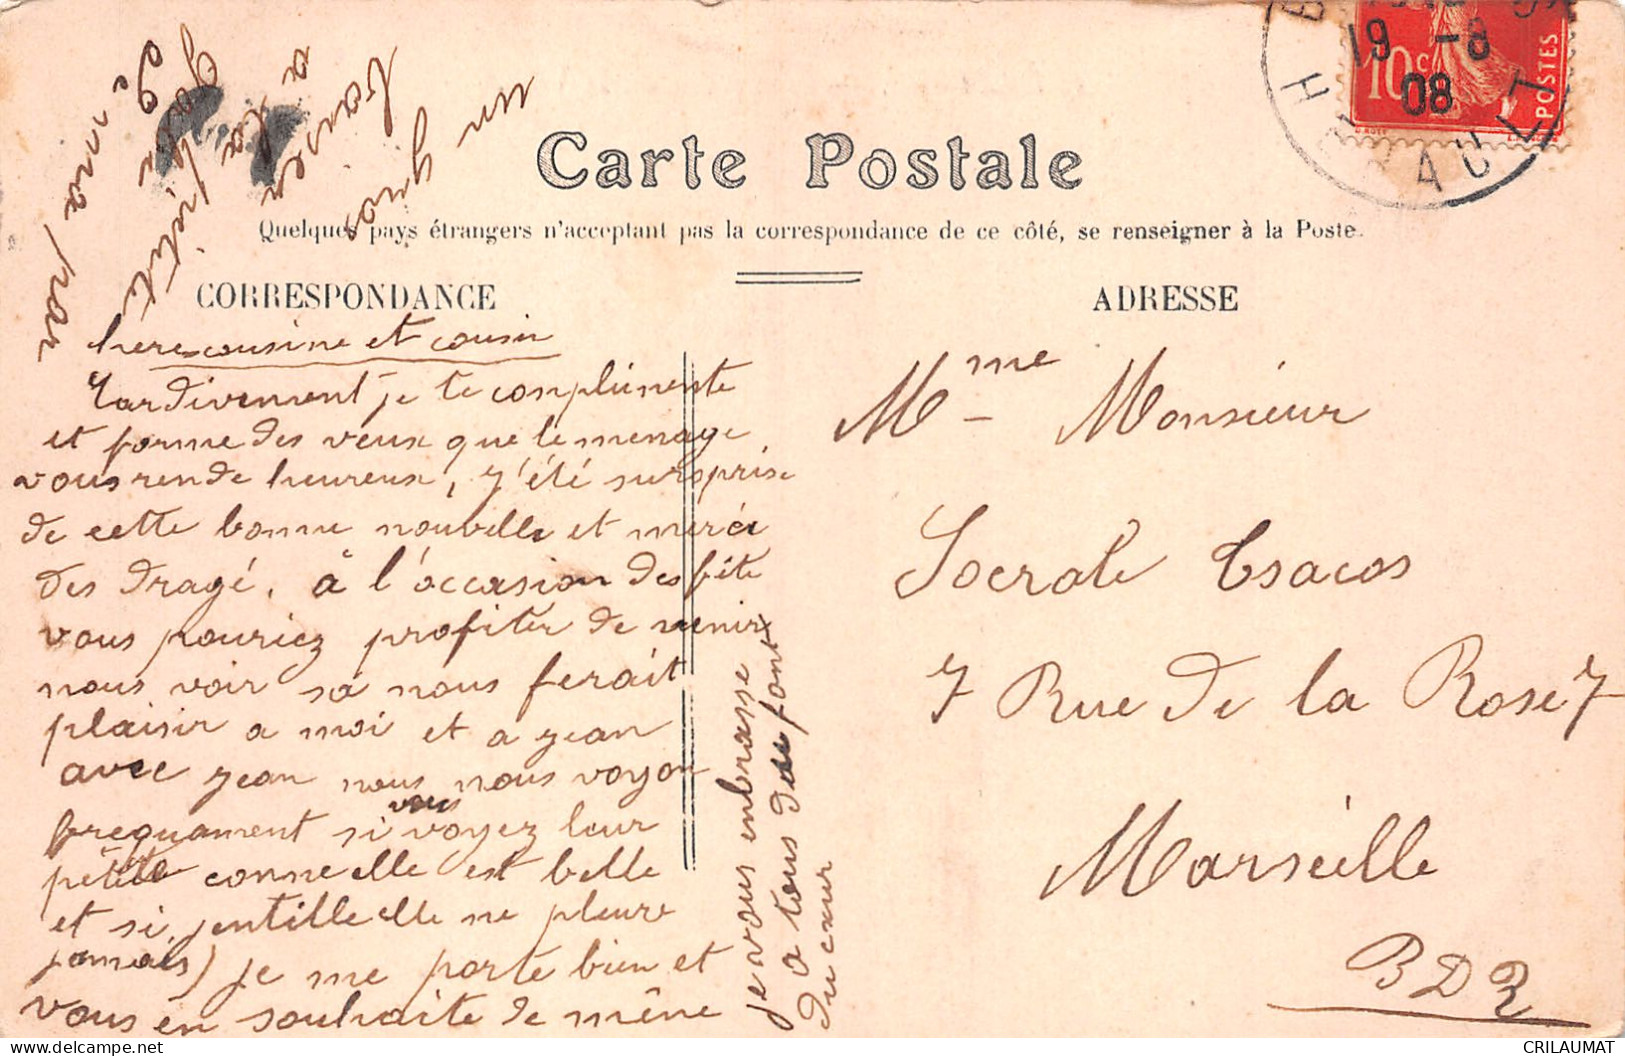 Carte Postale
Quelques pays étrangers n'acceptant pas la correspondance de ce côté, se renseigner à la Poste.
CORRESPONDANCE
ADRESSE
19 -8
08
HERAULT
10c
POSTES
cousine et cousin
Tardivement je te complimente
et forme des veux que le menage
vous rende heureux, j'été sursprise
de cette bonne nouvelle et merci
des dragé. à l'occasion des fête
vous pouriez profiter de venir
nous voir sa nous ferait
plaisir a moi et a jean
avec jean nous nous voyon
frequament si vous voyez leur
petite comme elle est belle
et si jentille elle ne pleure
jamais) je me porte bien et
vous en souhaite de même
je vous enbrasse
a tous deux font
du cœur
un gros
baiser
a la
petite
de ma par
Mme - Monsieur
Socrate Tsacos
7 Rue de la Rose 7
Marseille
BDR
CRILAUMAT